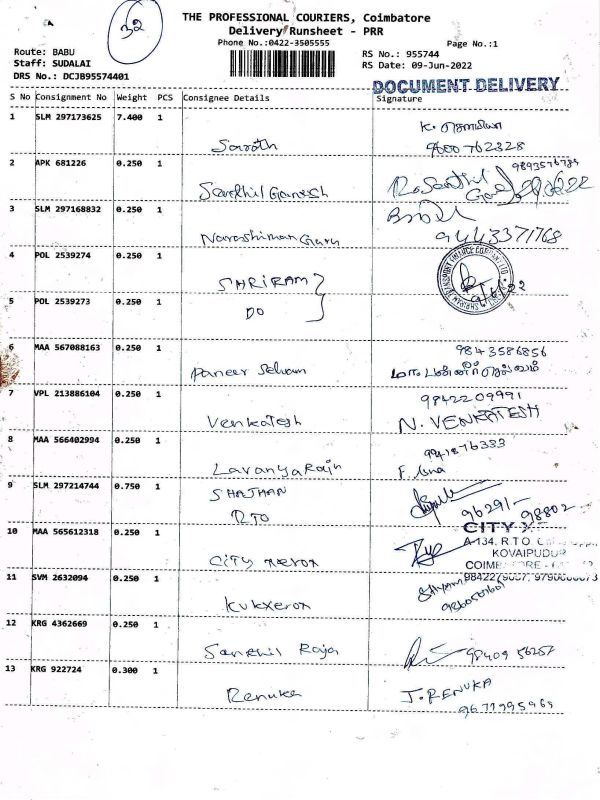 32
THE PROFESSIONAL COURIERS, Coimbatore
Delivery Runsheet - PRR
Phone No.:0422-3505555
Page No.:1
Route: BABU
Staff: SUDALAI
DRS No.: DCJB95574401
RS No.: 955744
RS Date: 09-Jun-2022
DOCUMENT DELIVERY
S No Consignment No Weight PCS Consignee Details Signature
1 SLM 297173625 7.400 1
Sarath
9600762328
2 APK 681226 0.250 1
Senthil Ganesh
3 SLM 297168832 0.250 1
9443371768
4 POL 2539274 0.250 1
SHRIRAM
5 POL 2539273 0.250 1
DO
6 MAA 567088163 0.250 1
Paneer Selvam
9843586856
மா. பன்னீர் செல்வம்
7 VPL 213886104 0.250 1
Venkatesh
9842209991
N. VENKATESH
8 MAA 566402994 0.250 1
Lavanya Raja
9 SLM 297214744 0.750 1
SHAJHAN
RTO
96291-98802
10 MAA 565612318 0.250 1
City Xerox
CITY
A-134, R.T.O.
KOVAIPUDUR
11 SVM 2632094 0.250 1
Kukxerox
12 KRG 4362669 0.250 1
Senthil Raja
98409 56257
13 KRG 922724 0.300 1
Renuka
J. RENUKA
9671995969